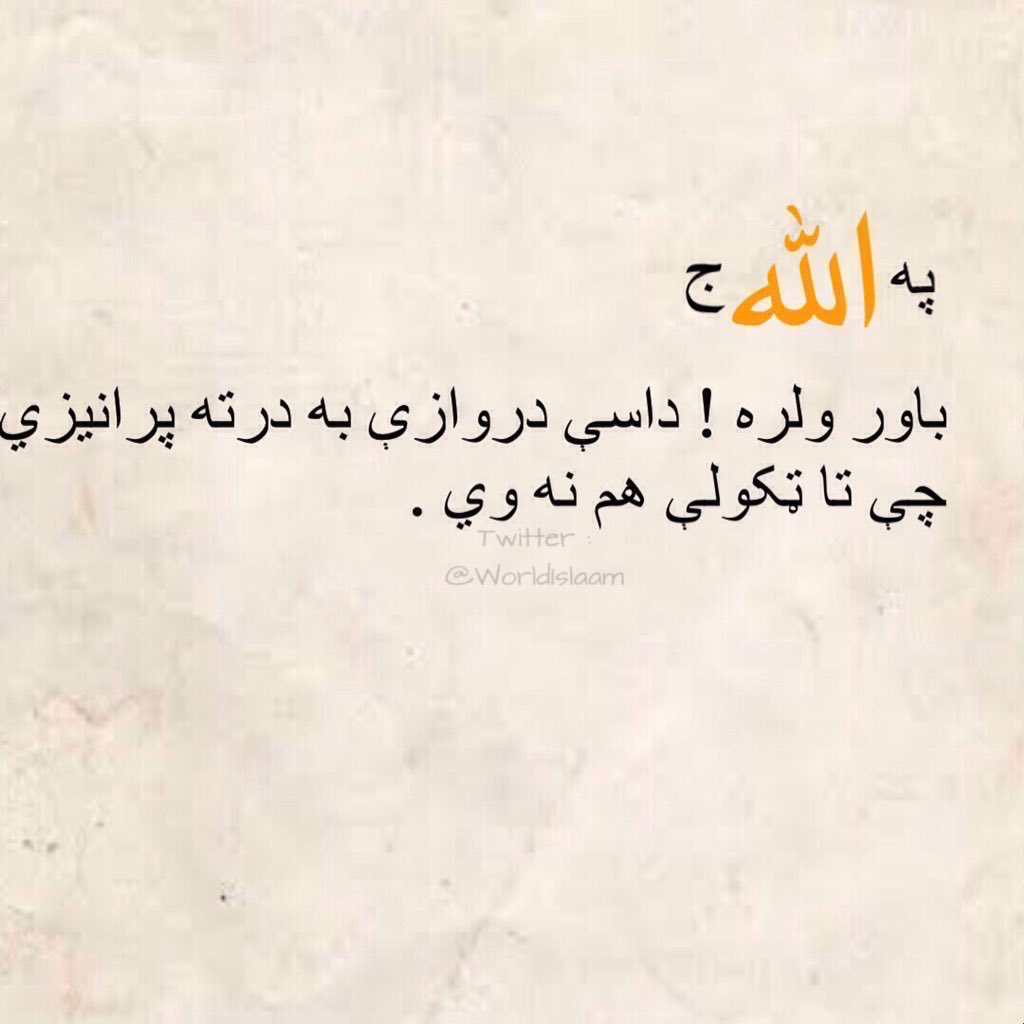 په الله ج
باور ولره ! داسې دروازې به درته پرانیزي
چې تا ټکولې هم نه وي .
Twitter :
@WorldIslaam